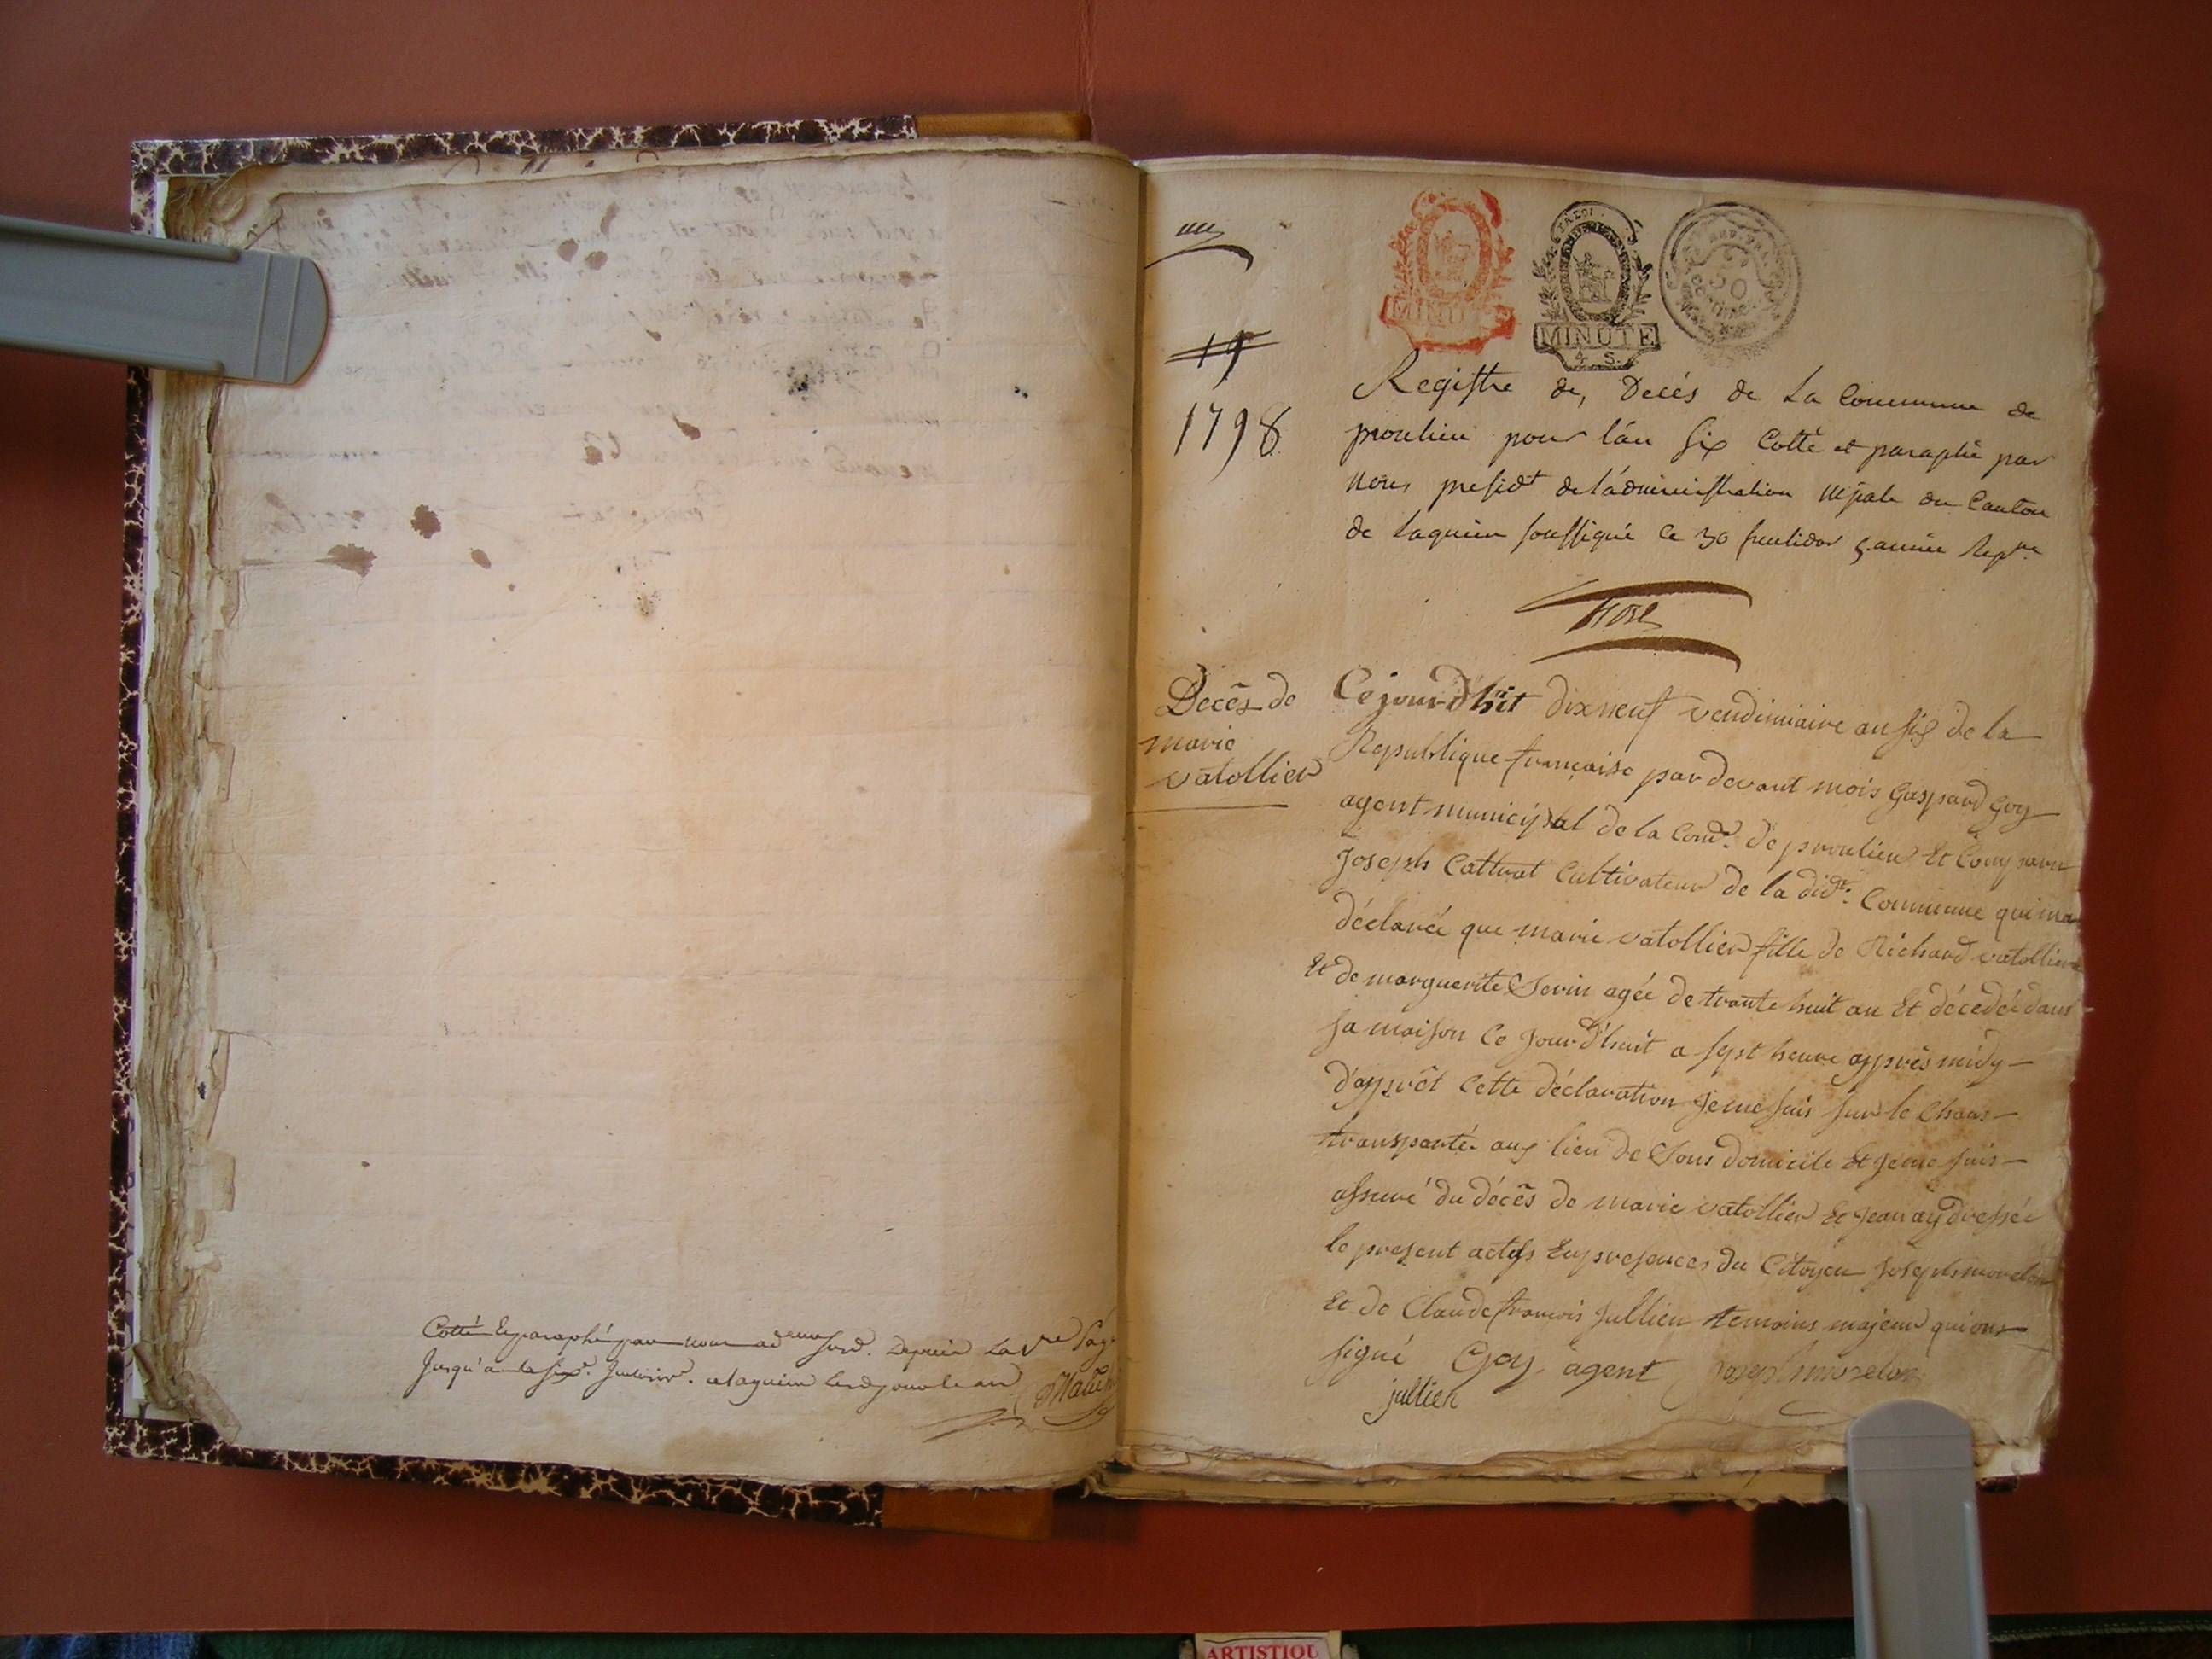 Cotté et paraphé par nous ad sous. depuis La 1re page
Jusqu'a la six.
MINUTE
MINUTE
4. S.
50
19
1798
Registre de, Decés de La Commune de
proulieu pour l'an six Cotté et paraphé par
Nous, presidt de l'administration Mpale du Canton
de Lagnieu soussigné Ce 30 fructidor 5. année Repne
Decẽs de
marie
vatollier
Ce jourd'huit dixneuf vendimiaire an six de la
Republique française par devant mois Gaspard Goy
agent municipal de la Come. de proulieu Et Comparu
Joseph Cattrat Cultivateur de la dite. Commune qui ma
déclaréé que marie vatollier fille de Richard vatollier
Et de marguerite Serin agée de trante huit an Et décedéé dans
sa maison Ce jourd'huit a sept heure apprès midy
d'apprêt Cette déclaration Je me suis sur le Chans
transporté aux lieu de Sons domicile Et Je me suis
assuré du décẽs de marie vatollier Et Jean ay dresséé
le present actes En presences du Citoyen Joseph morelon
Et de Claude françois Jullien temoins majeur qui ons
signé Goy agent Joseph morelon
jullien
ARTISTIQU